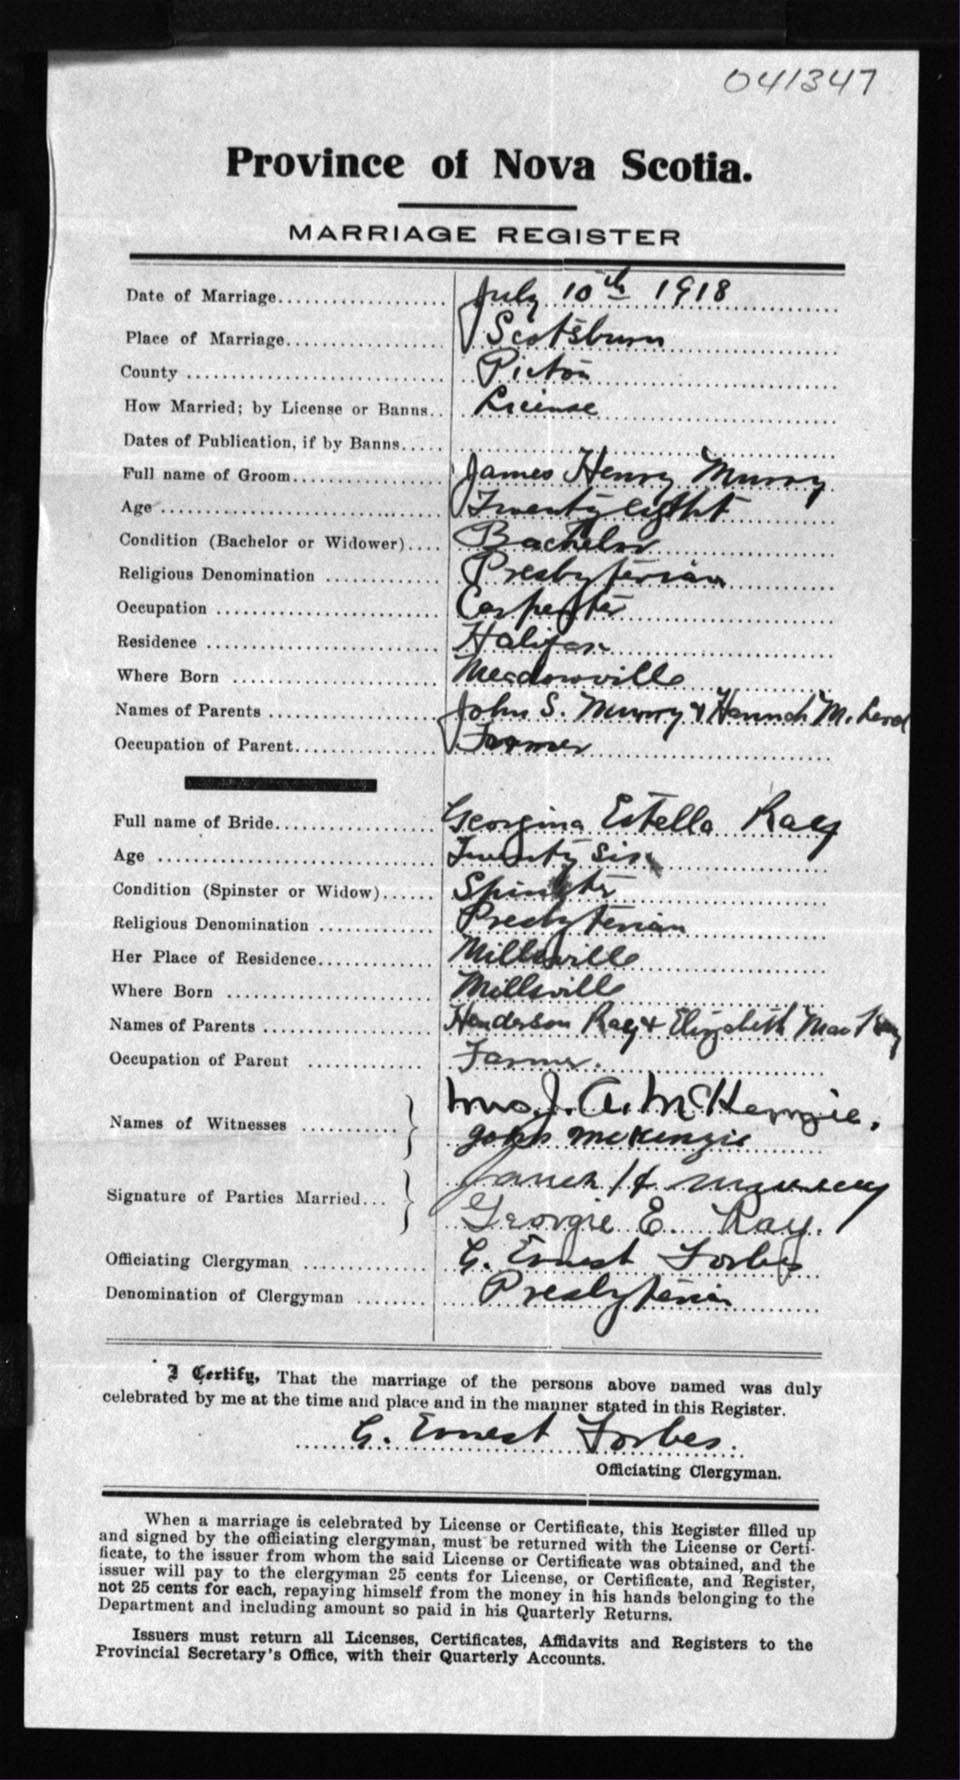 041347
Province of Nova Scotia.
MARRIAGE REGISTER
Date of Marriage.................... July 10th 1918
Place of Marriage................... Scotsburn
County .............................. Pictou
How Married; by License or Banns.. License
Dates of Publication, if by Banns.....
Full name of Groom.................. James Henry Murray
Age ................................. Twenty eight
Condition (Bachelor or Widower).... Bachelor
Religious Denomination ............ Presbyterian
Occupation ......................... Carpenter
Residence .......................... Halifax
Where Born ........................ Meadowville
Names of Parents .................. John S. Murray & Hannah McLeod
Occupation of Parent............... Farmer
Full name of Bride.................. Georgina Estella Ray
Age ................................. Twenty Six
Condition (Spinster or Widow)...... Spinster
Religious Denomination ............ Presbyterian
Her Place of Residence............. Millsville
Where Born ........................ Millsville
Names of Parents .................. Henderson Ray & Elizabeth Mac
Occupation of Parent ............ Farmer.
Names of Witnesses .......... Mrs. J. A. McKenzie.
John McKenzie
Signature of Parties Married... James H Murray
Georgie E. Ray.
Officiating Clergyman ............. G. Ernest Forbes
Denomination of Clergyman ........ Presbyterian
I Certify, That the marriage of the persons above named was duly
celebrated by me at the time and place and in the manner stated in this Register.
G. Ernest Forbes.
Officiating Clergyman.
When a marriage is celebrated by License or Certificate, this Register filled up
and signed by the officiating clergyman, must be returned with the License or Certi-
ficate, to the issuer from whom the said License or Certificate was obtained, and the
issuer will pay to the clergyman 25 cents for License, or Certificate, and Register,
not 25 cents for each, repaying himself from the money in his hands belonging to the
Department and including amount so paid in his Quarterly Returns.
Issuers must return all Licenses, Certificates, Affidavits and Registers to the
Provincial Secretary's Office, with their Quarterly Accounts.